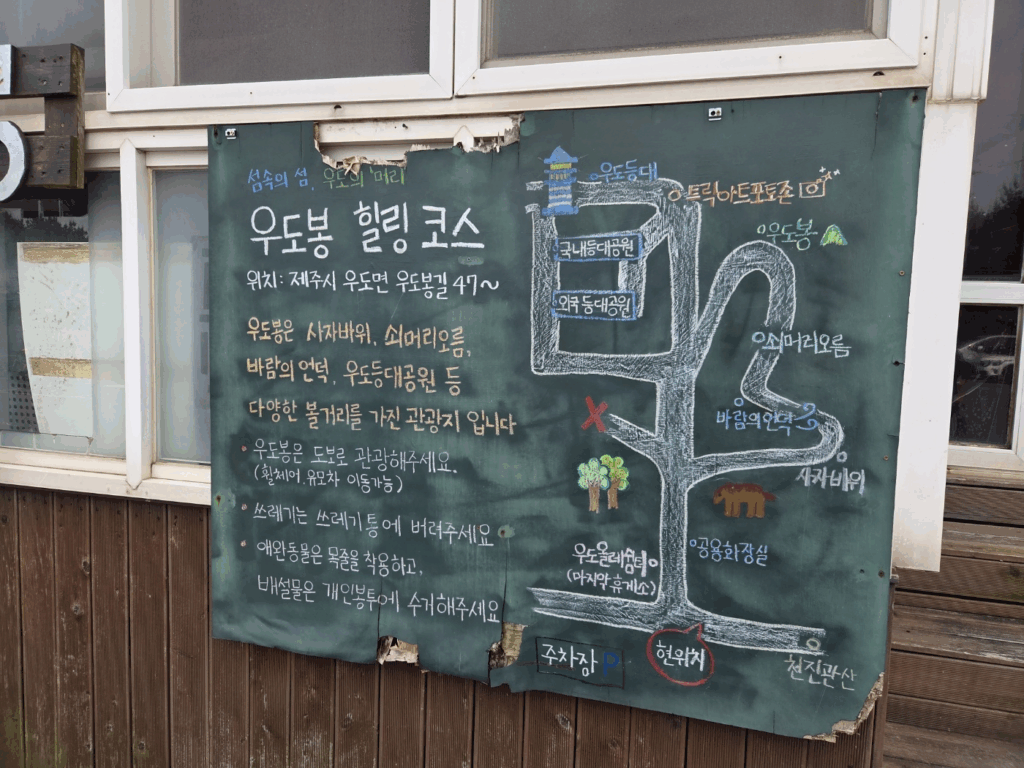 섬속의 섬, 우도의 '머리'
우도봉 힐링 코스
위치: 제주시 우도면 우도봉길 47~
우도봉은 사자바위, 쇠머리오름,
바람의 언덕, 우도등대공원 등
다양한 볼거리를 가진 관광지 입니다
• 우도봉은 도보로 관광해주세요.
(휠체어, 유모차 이동가능)
• 쓰레기는 쓰레기통에 버려주세요
• 애완동물은 목줄을 착용하고,
배설물은 개인봉투에 수거해주세요
우도등대
트릭아트포토존
우도봉
국내등대공원
외국등대공원
쇠머리오름
바람의언덕
사자바위
공용화장실
우도올레쉼터
(마지막 휴게소)
주차장 P
현위치
천진관산